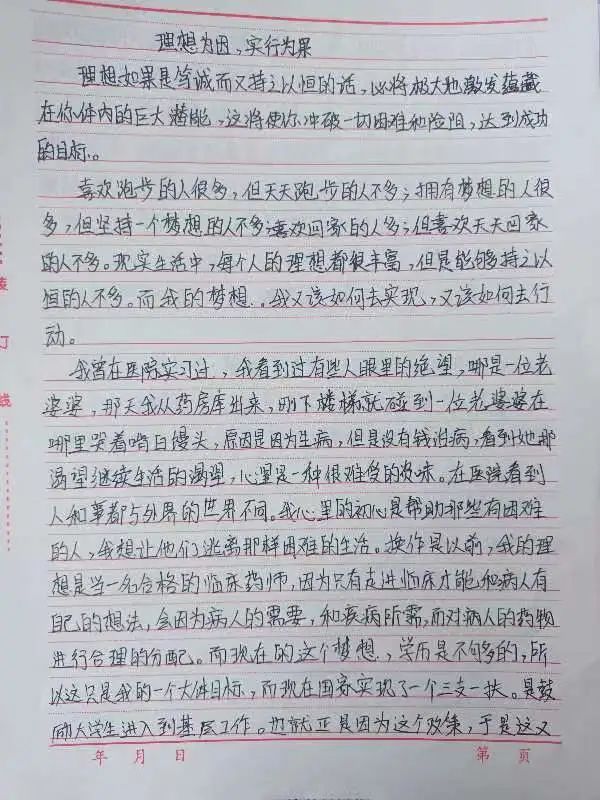 理想为因，实行为果
理想如果是笃诚而又持之以恒的话，必将极大地激发蕴藏
在你体内的巨大潜能，这将使你冲破一切困难和险阻，达到成功
的目标。
喜欢跑步的人很多，但天天跑步的人不多；拥有梦想的人很
多，但坚持一个梦想的人不多；喜欢回家的人多；但喜欢天天回家
的人不多。现实生活中，每个人的理想都很丰富，但是能够持之以
恒的人不多。而我的梦想..我又该如何去实现，又该如何去行
动。
我曾在医院实习过，我看到过有些人眼里的绝望，哪是一位老
婆婆，那天我从药房库出来，刚下楼梯就碰到一位老婆婆在
哪里哭着啃白馒头，原因是因为生病，但是没有钱治病，看到她那
渴望继续生活的渴望，心里是一种很难受的滋味。在医院看到
人和事都与外界的世界不同。我心里的初心是帮助那些有困难
的人，我想让他们逃离那样困难的生活。换作是以前，我的理
想是当一名合格的临床药师，因为只有走进临床才能和病人有
自己的想法，会因为病人的需要，和疾病所需，而对病人的药物
进行合理的分配。而现在的这个梦想，学历是不够多的，所
以这只是我的一个大体目标，而现在国家实现了一个三支一扶。是鼓
励大学生进入到基层工作。也就正是因为这个政策，于是这又
年 月 日 第 页
订
线